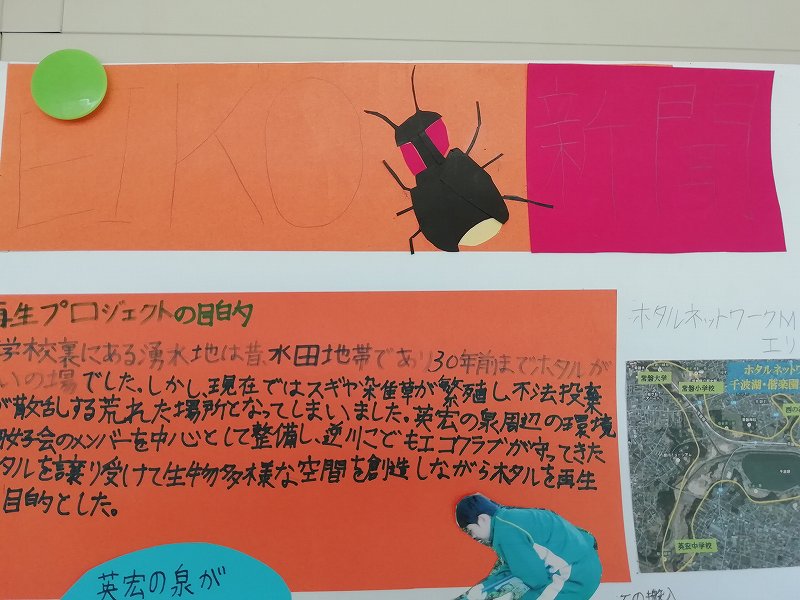 EIKO 新聞
再生プロジェクトの目的
学校裏にある湧水地は昔、水田地帯であり30年前までホタルが
いの場でした。しかし、現在ではスギや染雑草が繁殖し不法投棄
が散乱する荒れた場所となってしまいました。英宏の泉周辺の環境
会のメンバーを中心として整備し、逆川こどもエコクラブが守ってきた
タルを譲り受けて生物多様な空間を創造しながらホタルを再生
目的とした。
英宏の泉が
ホタルネットワークM
エリ
ホタルネットワ
千波湖・偕楽園
常磐大学
常磐小学校
千波湖
英宏中学校